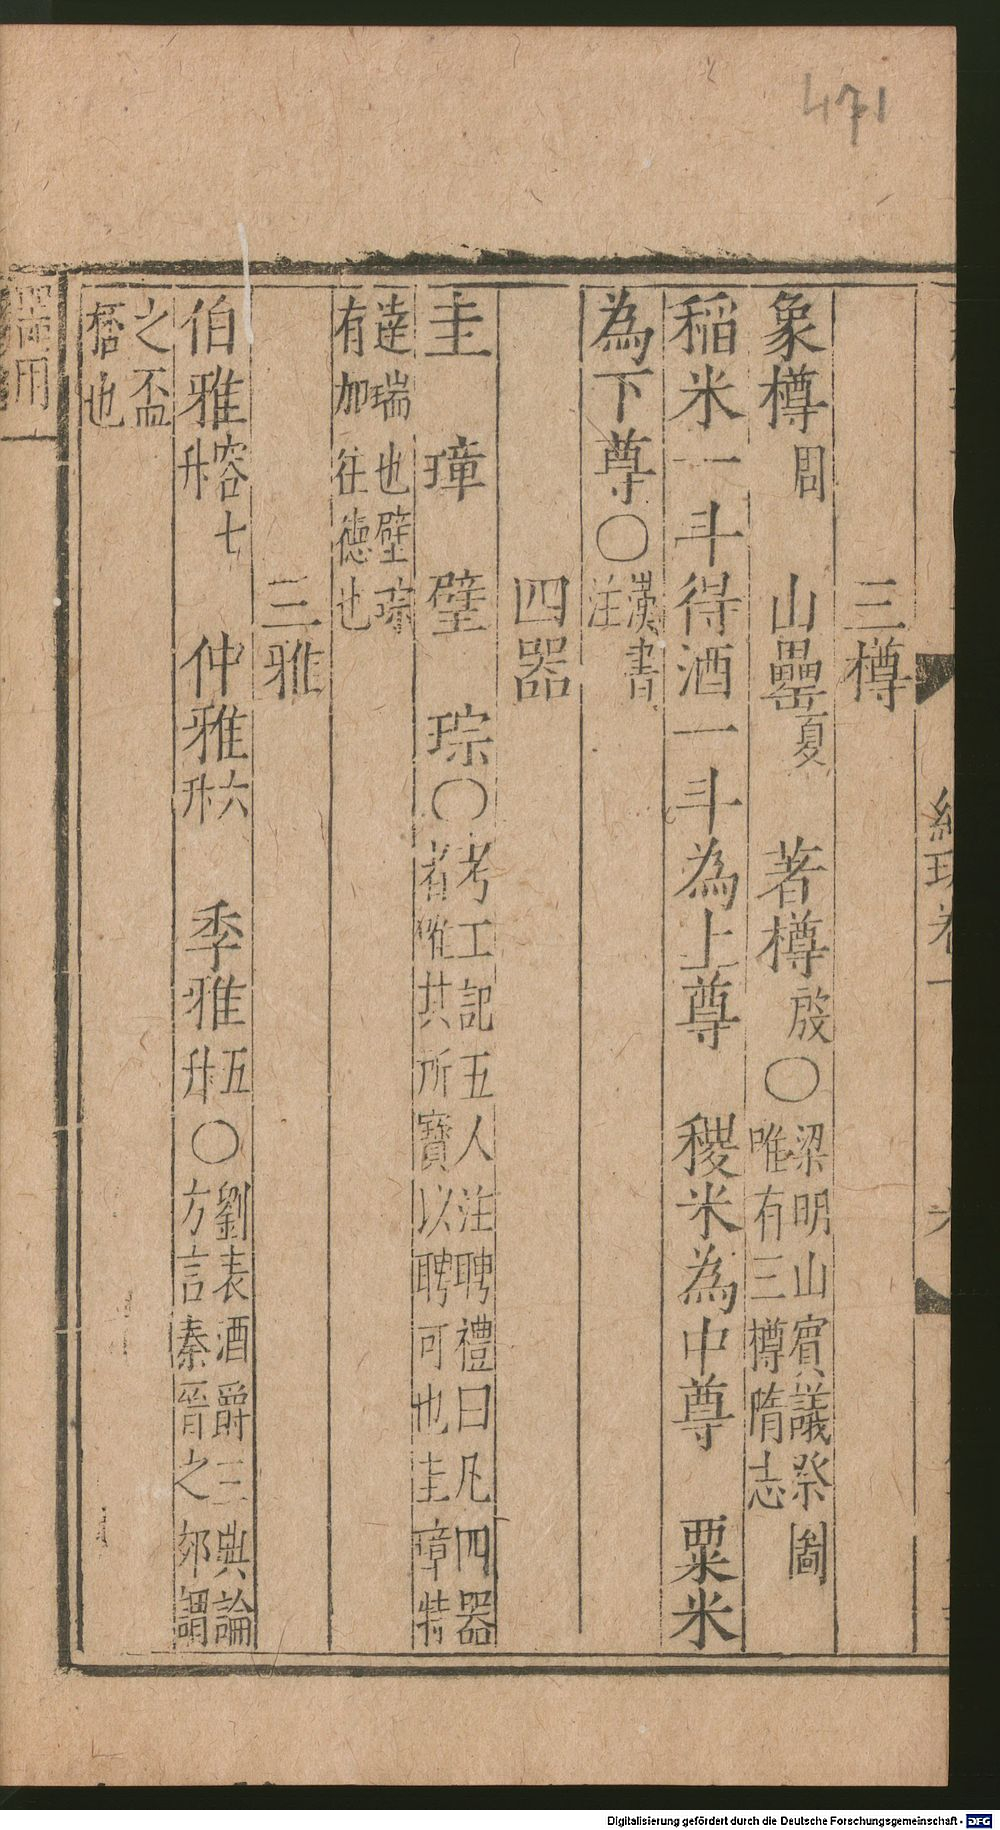 471
三樽
象樽周　山罍夏　著樽殷〇梁明山賓議祭圖唯有三樽隋志
稲米一斗得酒一斗為上尊　稷米為中尊　粟米
為下尊〇漢書注
四器
圭　璋　璧　琮〇考工記五人注聘禮曰凡四器者惟其所寶以聘可也圭璋特
達瑞也璧琮有加往德也
三雅
伯雅容七升　仲雅六升　季雅五升〇劉表酒爵三典論方言秦晉之郊謂
之盃㮎也
器用
Digitalisierung gefördert durch die Deutsche Forschungsgemeinschaft - DFG